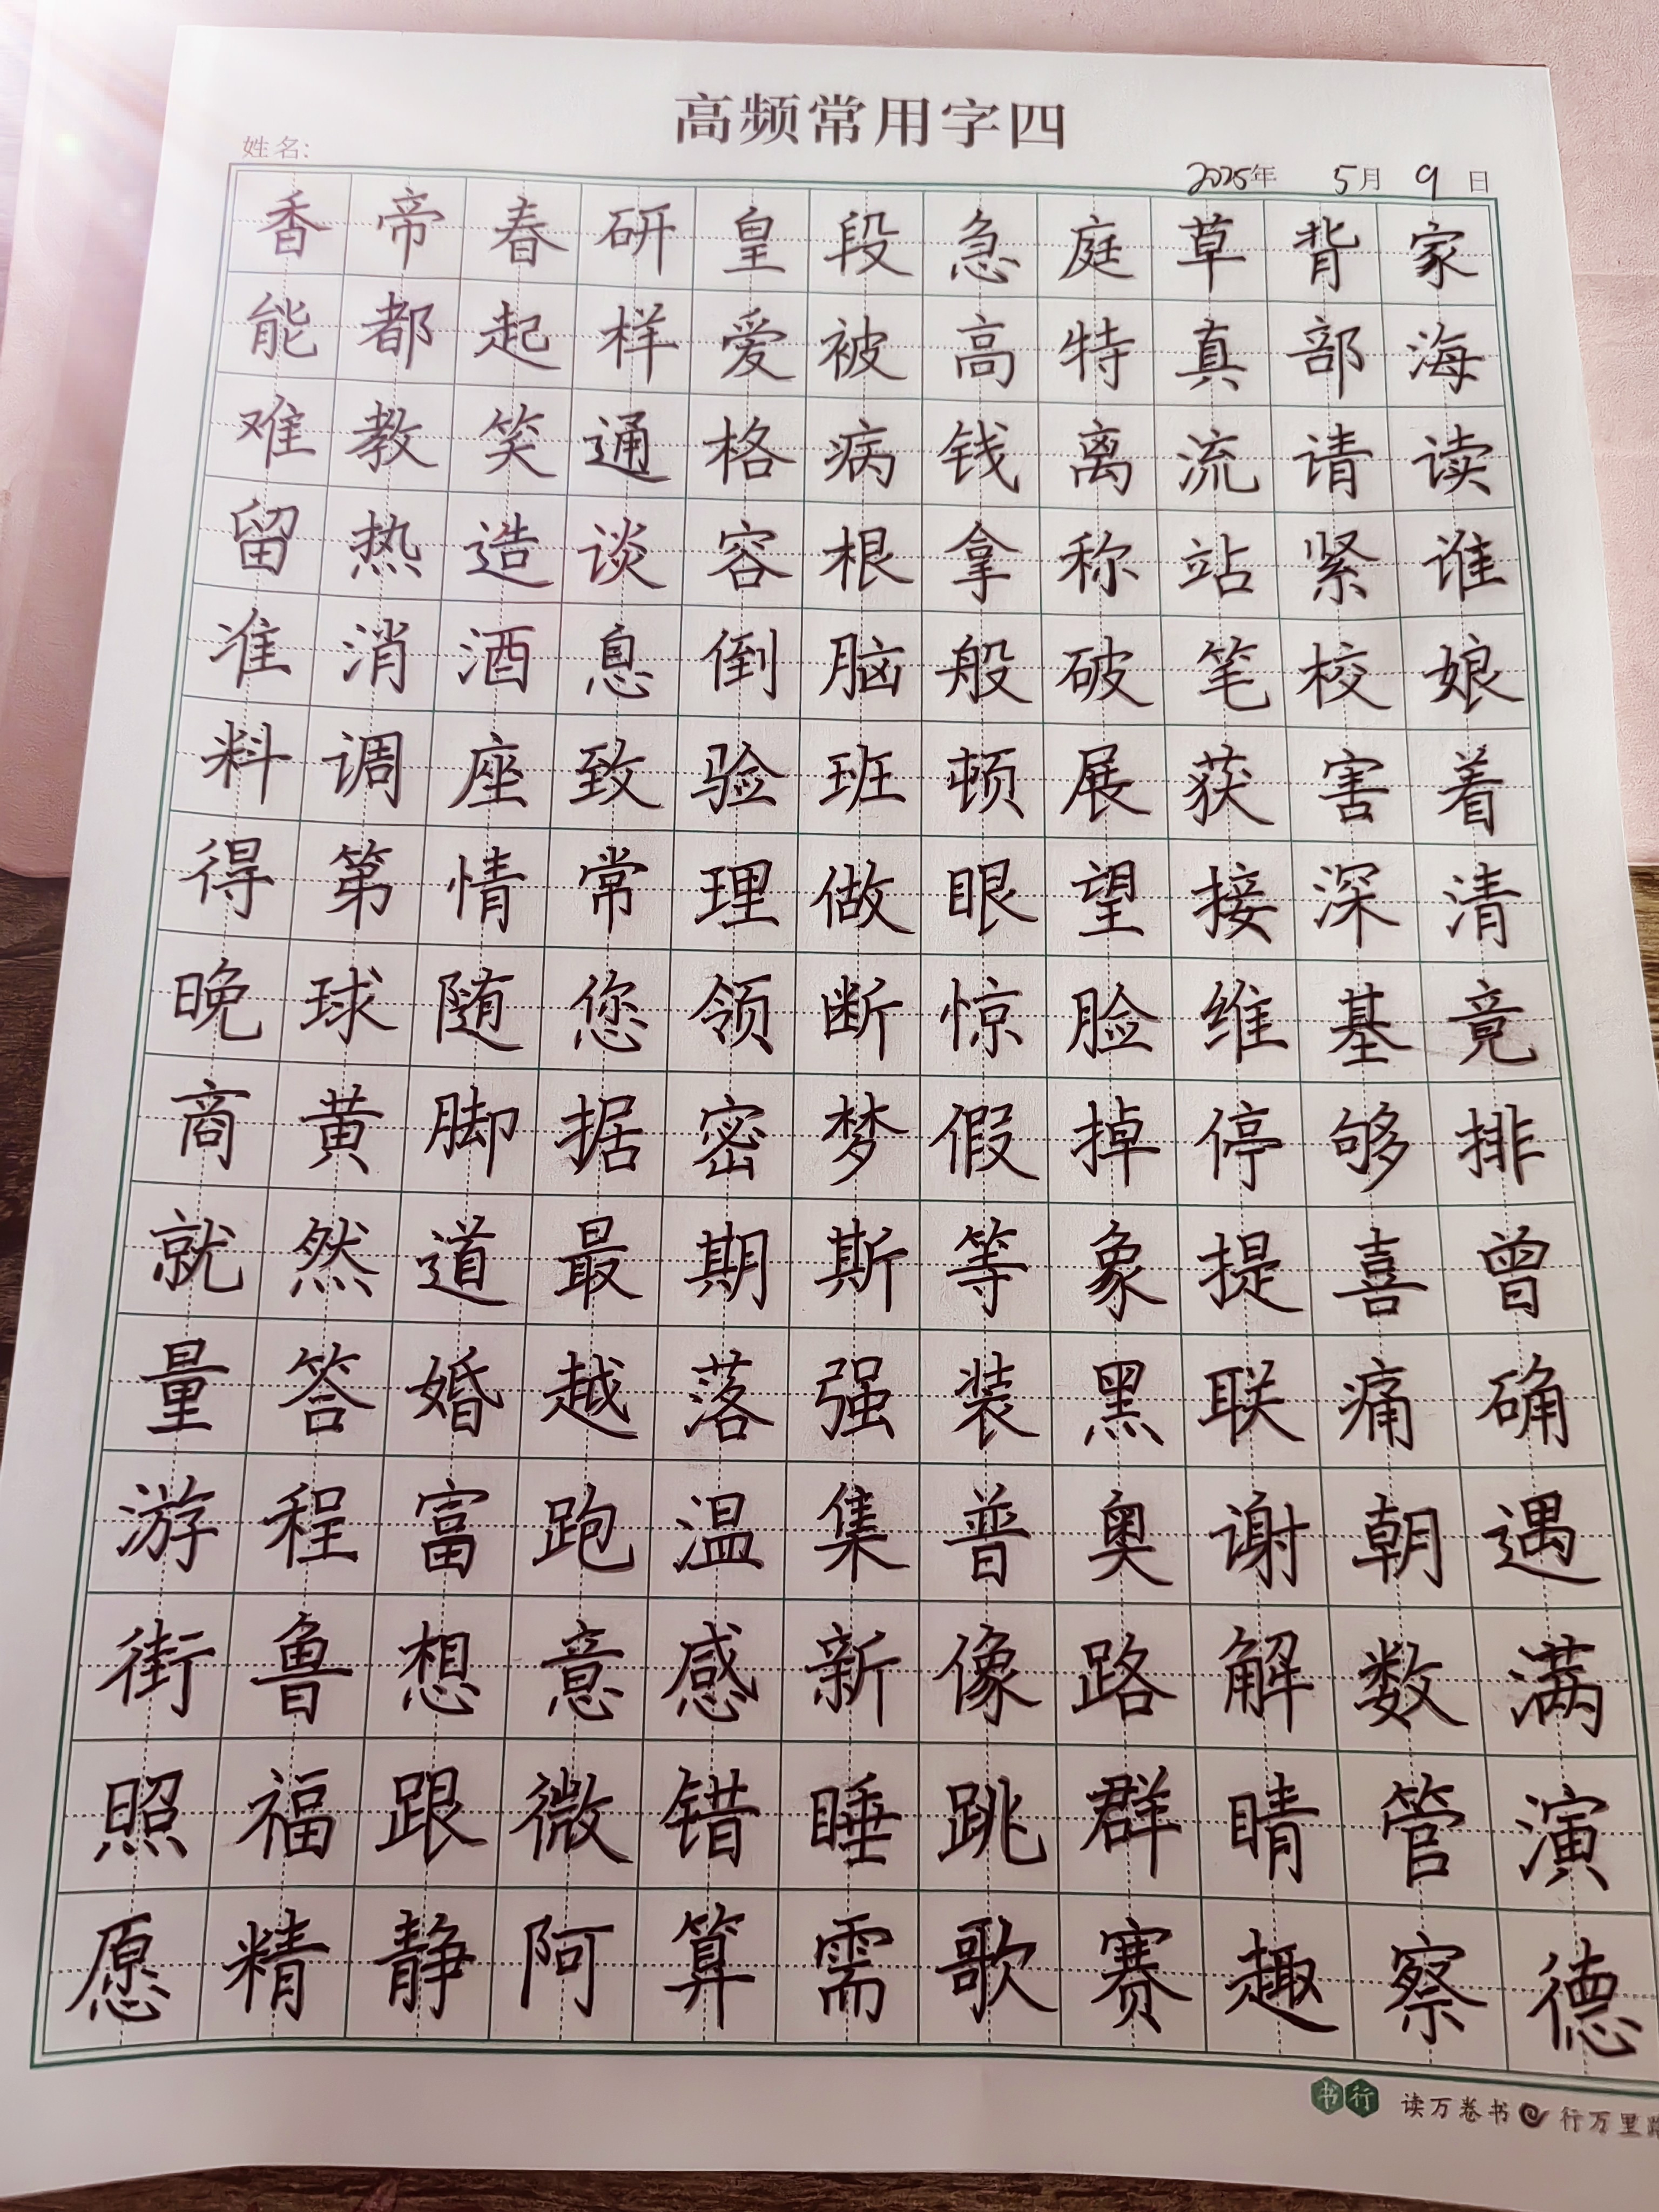 高频常用字四
姓名:
2025年 5月 9日
香帝春研皇段急庭草背家
能都起样爱被高特真部海
难教笑通格病钱离流请读
留热造谈容根拿称站紧谁
准消酒息倒脑般破笔校娘
料调座致验班顿展获害着
得第情常理做眼望接深清
晚球随您领断惊脸维基竟
商黄脚据密梦假掉停够排
就然道最期斯等象提喜曾
量答婚越落强装黑联痛确
游程富跑温集普奥谢朝遇
街鲁想意感新像路解数满
照福跟微错睡跳群睛管演
愿精静阿算需歌赛趣察德
书行 读万卷书 行万里路